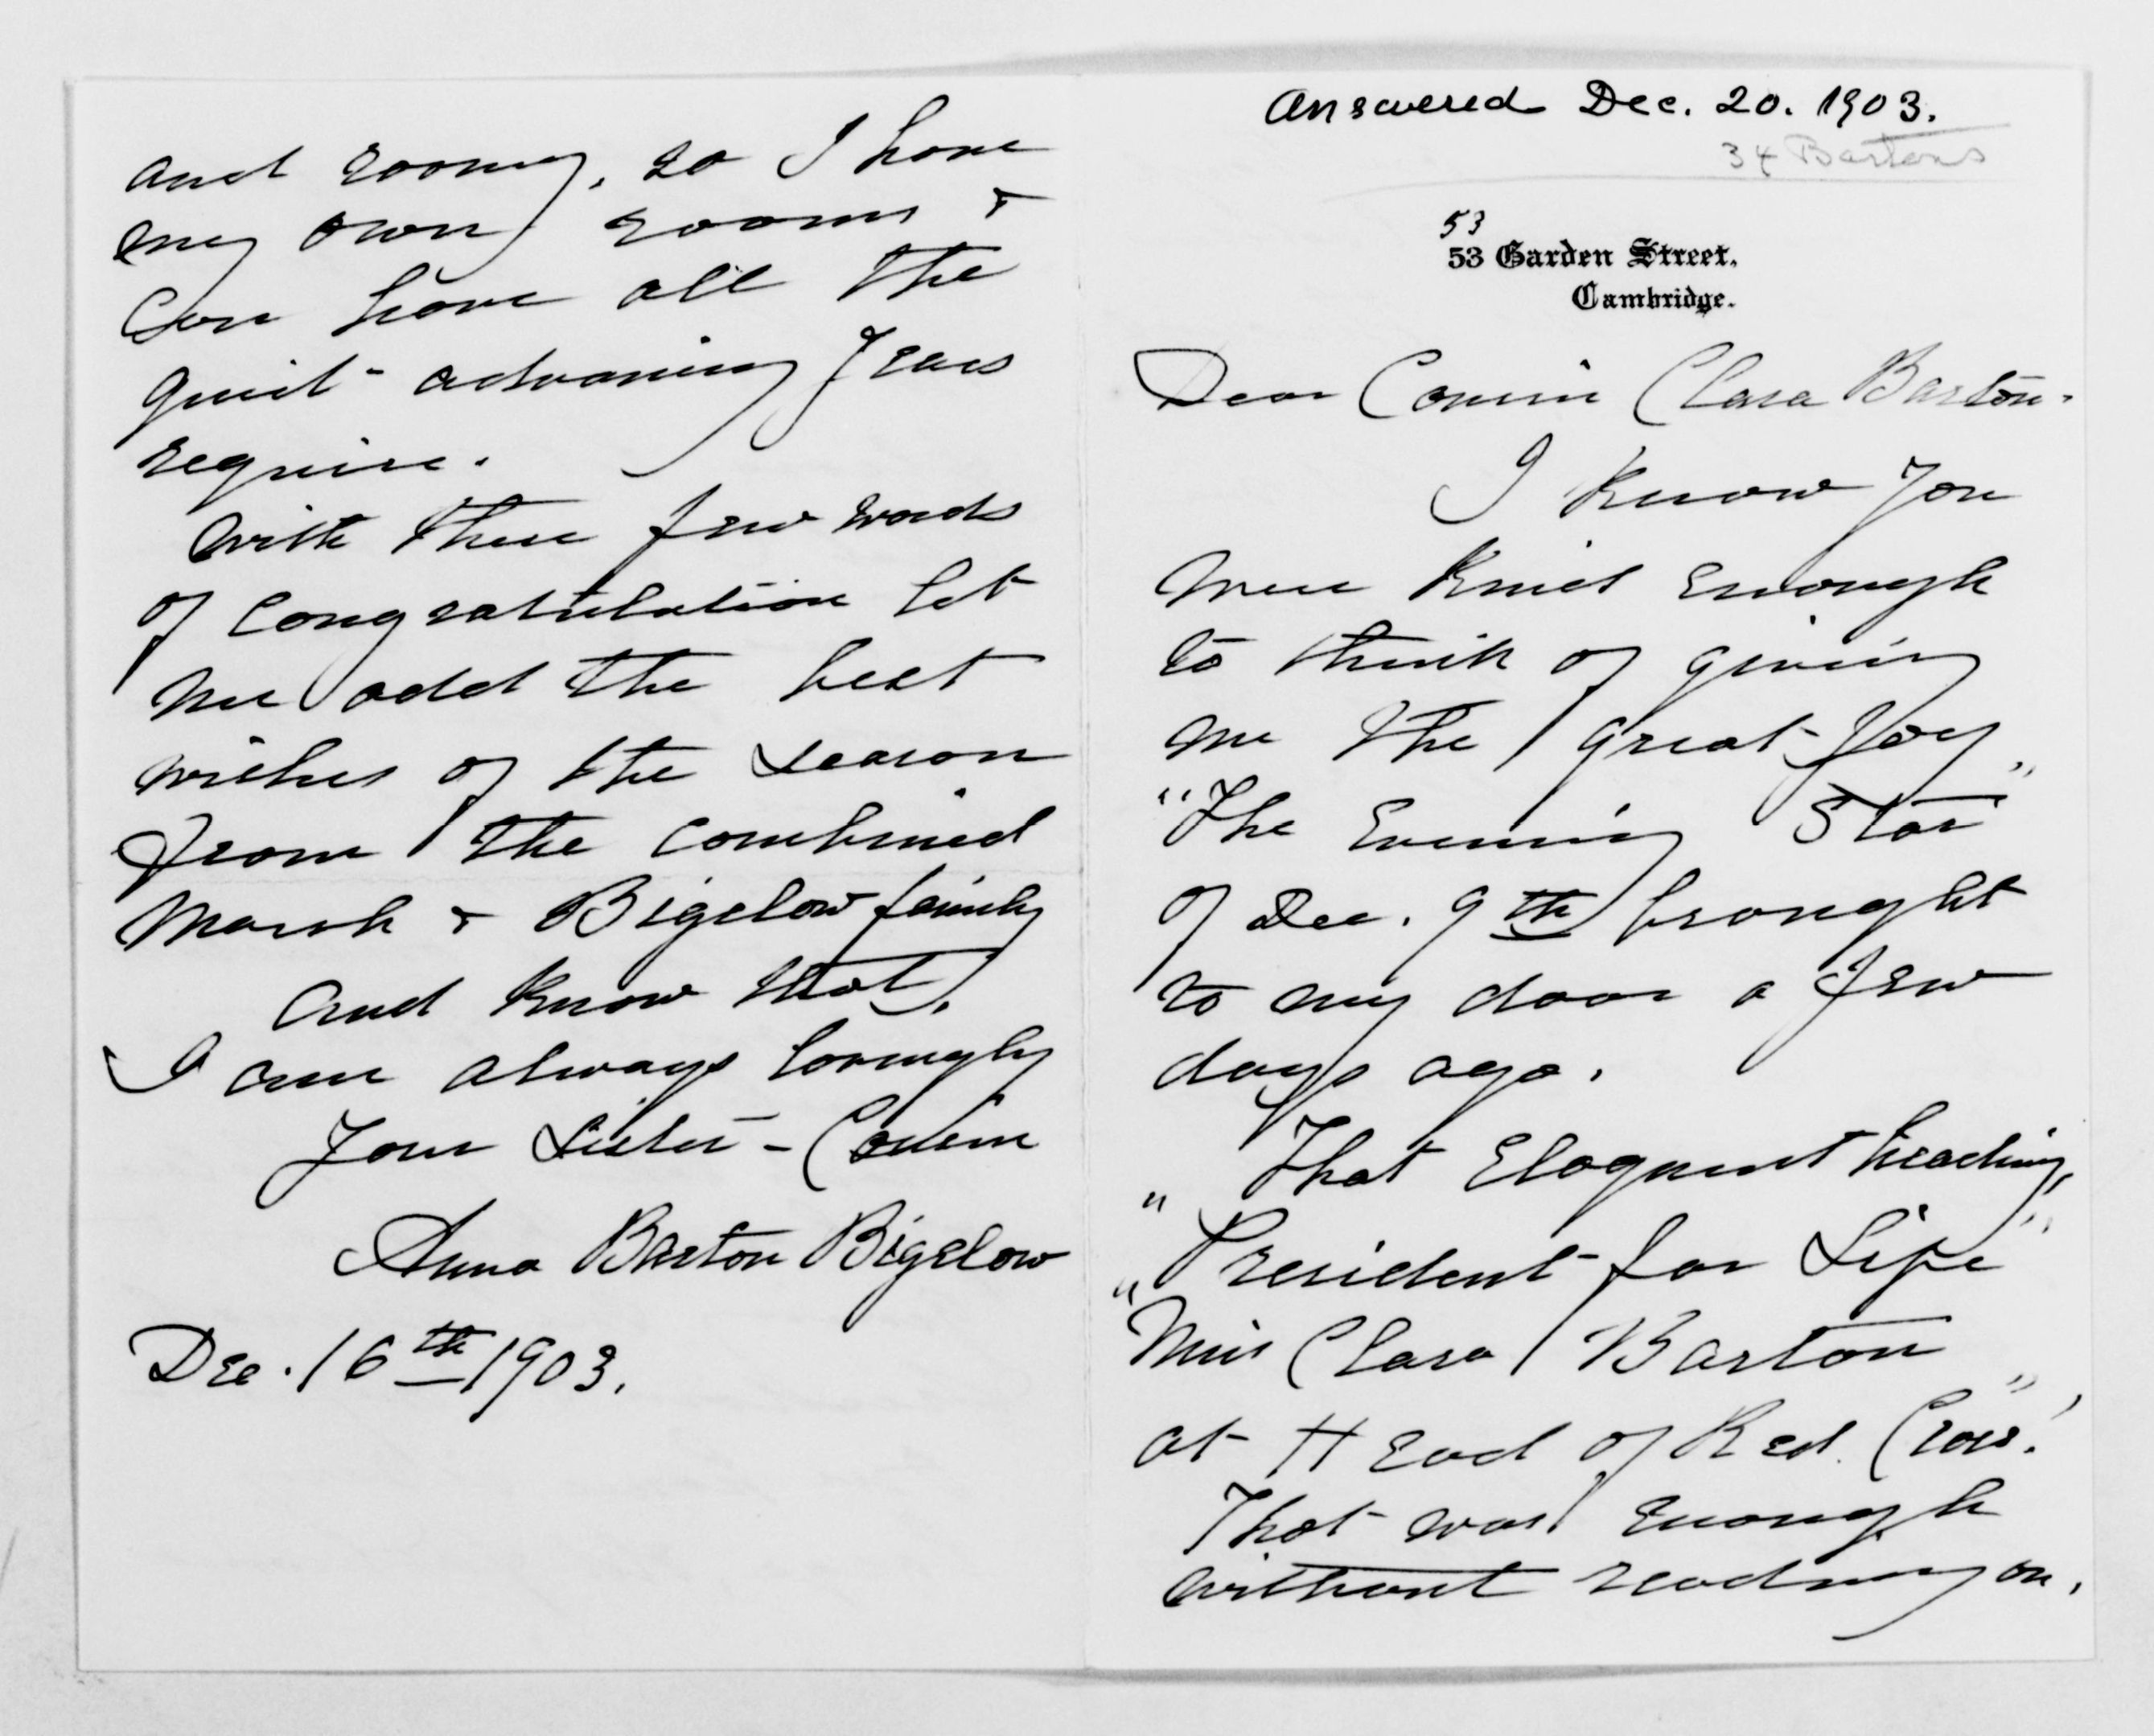 Answered Dec. 20. 1903.
34 Bartons
53
53 Garden Street,
Cambridge.
Dear Cousin Clara Barton.
I know you
were kind enough
to think of giving
me the great joy,
"The Evening Star"
of Dec. 9th brought
to my door a few
days ago.
"That Eloquent heading,
"President for Life"
Miss Clara Barton
at Head of Red Cross."
That was enough
without reading on.
and roomy, so I have
my own rooms &
can have all the
quiet advancing years
require.
With these few words
of congratulation let
me add the best
wishes of the season
from the combined
Marsh & Bigelow family
and know that,
I am always lovingly
Your Sister-Cousin
Anna Barton Bigelow
Dec. 16th 1903.